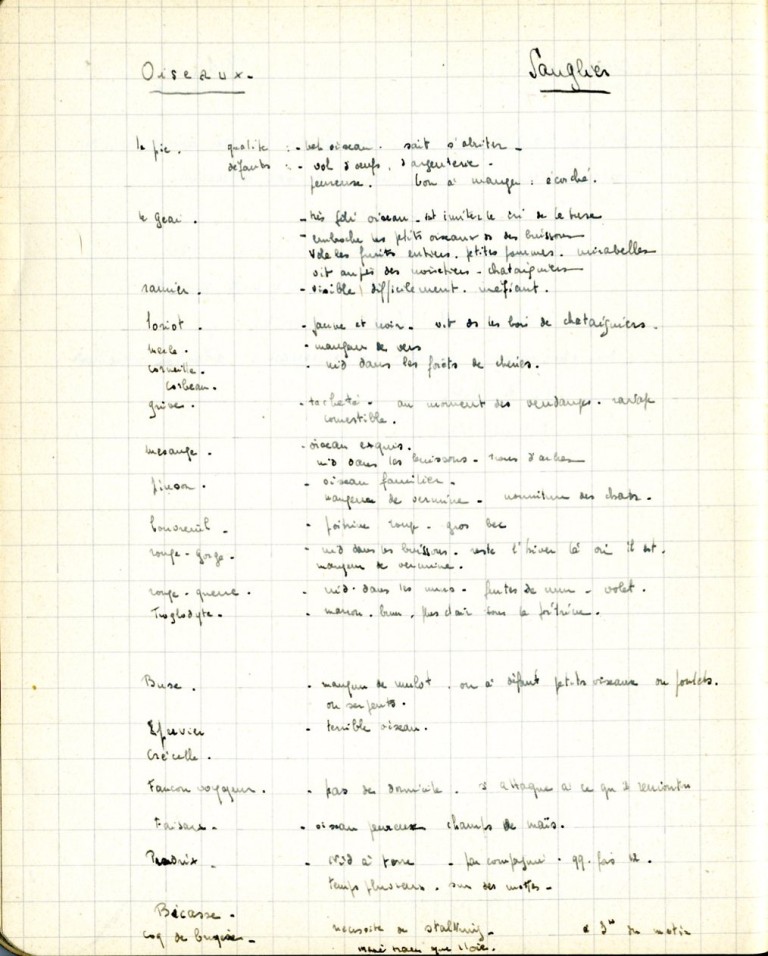 Oiseaux - Sanglier
la pie. qualité : - bel oiseau. sait s'abriter -
défauts : - vol d'oeufs, d'argenterie -
peureuse. bon à manger : écorché.
le geai. - très joli oiseau - imiter le cri de la buse
- embache les petits oiseaux ds des buissons
Vole les fruits entiers. petites pommes. mirabelles
vit auprès des noisetiers - chataigniers
ramier. - visible difficilement. méfiant.
loriot. - jaune et noir - vit ds les bois de chataigniers.
merle. - mangeur de vers
corneille. - nid dans les forêts de chênes.
corbeau.
grive. - tacheté - au moment des vendanges.
comestible.
mesange. - oiseau exquis.
nid dans les buissons - d'arbres
pinson. - oiseau familier -
mangeur de vermine - nourriture des chats -
bouvreuil - - poitrine rouge - gros bec
rouge-gorge - - nid dans les buissons. reste l'hiver là où il est.
mangeur de vermine.
rouge-queue. - nid dans les murs - fentes de mur - volet.
Troglodyte. - marron, brun, plus clair sous la poitrine.
Buse. - mangeur de mulot, ou à défaut petits oiseaux ou poulets.
ou serpents.
Epervier - terrible oiseau.
Crécelle.
Faucon voyageur. - pas de domicile. s'attaque à ce qu'il rencontre
Faisans - - oiseau peureux champs de maïs.
Perdrix - - nid à terre - par compagnie. qq. fois
temps pluvieux. sur des mottes -
Bécasse -
coq de bruyère - nécessite du stalking - du matin
que l'oie.